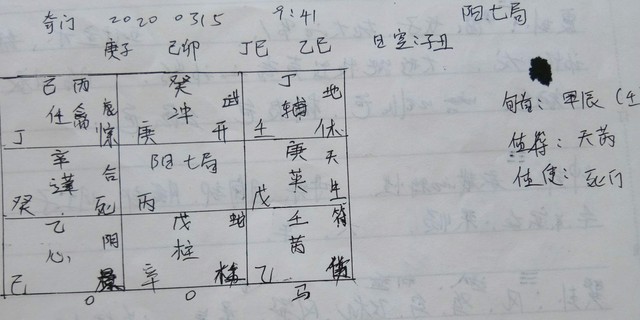 奇门 2020 0315 9:41 阳七局
庚子 己卯 丁巳 乙巳 日空:子丑
旬首: 甲辰(壬
值符: 天芮
值使: 死门
己 丙
任 禽
惊
丁
癸
冲
庚 开
丁 地
辅
壬 休
辛 合
癸 死
阳七局
丙
庚 天
英
戊 生
乙 阴
心
己 景
戊
柱
辛
壬 符
芮
乙
O O 马